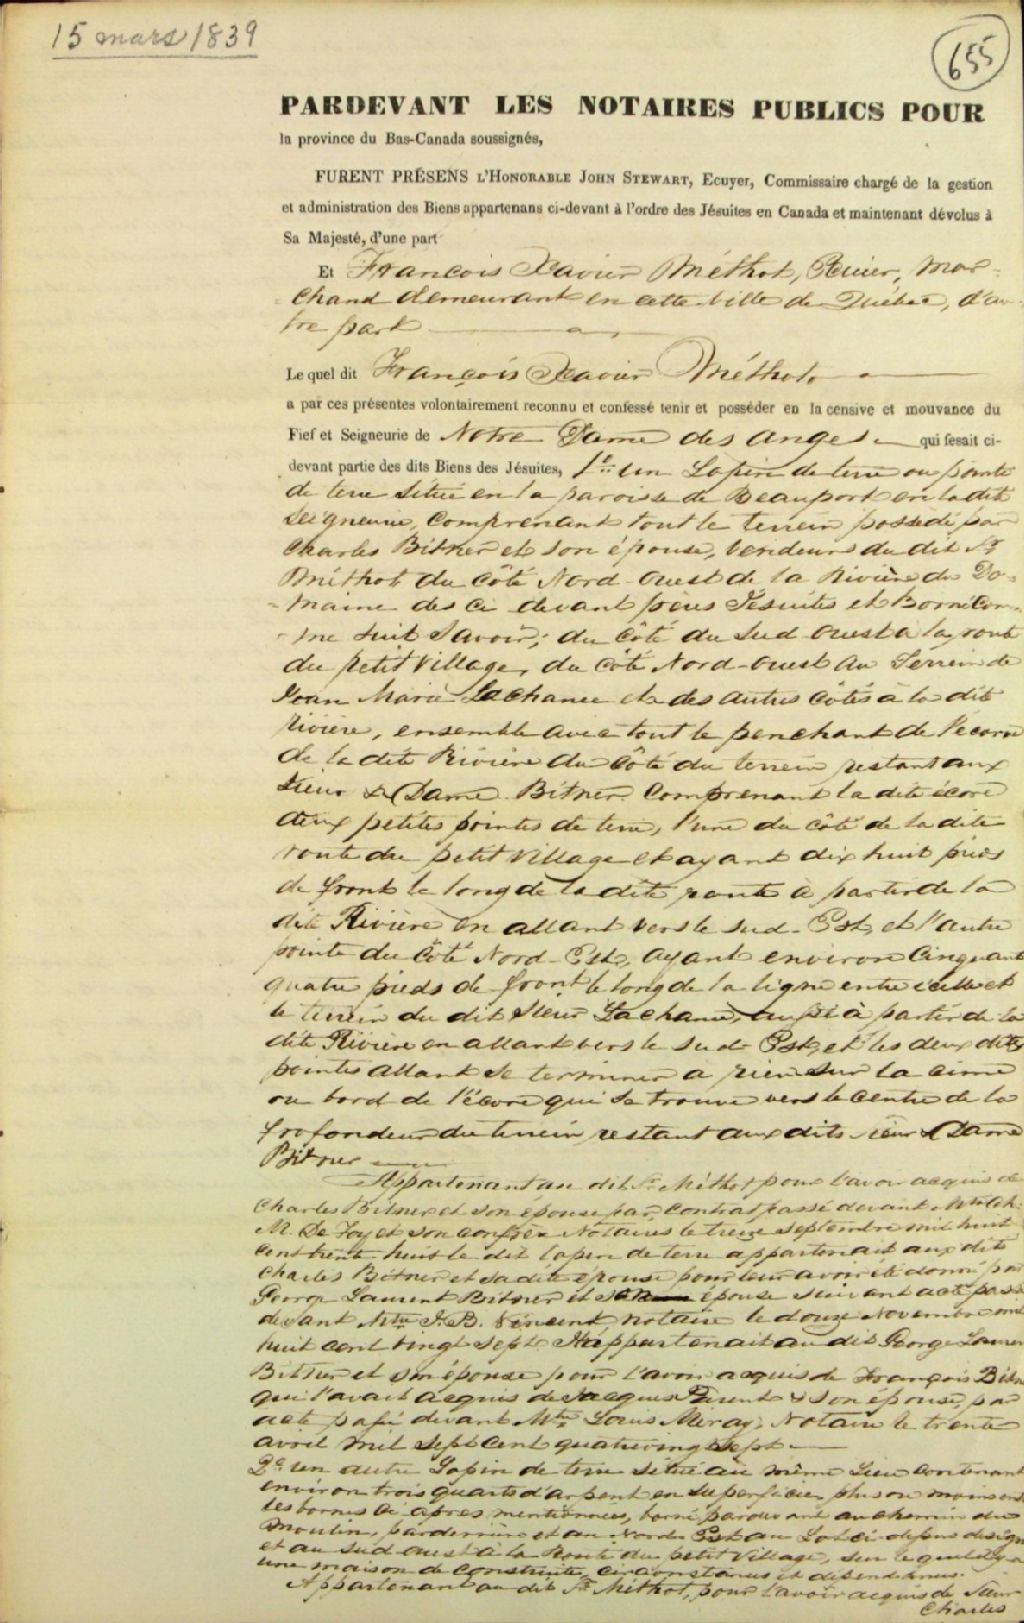 15 mars 1839
655
PARDEVANT LES NOTAIRES PUBLICS POUR
la province du Bas-Canada soussignés,
FURENT PRÉSENS L'HONORABLE JOHN STEWART, Ecuyer, Commissaire chargé de la gestion
et administration des Biens appartenans ci-devant à l'ordre des Jésuites en Canada et maintenant dévolus à
Sa Majesté, d'une part
Et François Xavier Méthot, Ecuier, Mar-
chand demeurant en cette ville de Québec, d'au-
tre part
Le quel dit François Xavier Méthot
a par ces présentes volontairement reconnu et confessé tenir et posséder en la censive et mouvance du
Fief et Seigneurie de Notre Dame des Anges qui fesait ci-
devant partie des dits Biens des Jésuites, 1° un Lopin de terre ou pointe
de terre située en la paroisse de Beauport en la dite
Seigneurie, comprenant tout le terrein possédé par
Charles Bitner et son épouse, vendeurs du dit Sr
Méthot du côté Nord-Ouest de la Rivière du Do-
maine des ci devant pères Jésuites et Borné com-
me suit Savoir; du côté du Sud Ouest à la route
du petit Village, du côté Nord-Ouest au Terrein de
Jean Marie Lachance et des autres côtés à la dite
Rivière, ensemble avec tout le penchant de l'écore
de la dite Rivière du côté du terrein restant aux
Sieur & Dame Bitner comprenant la dite écore
deux petites pointes de terre, l'une du côté de la dite
route du petit Village et ayant dix huit pieds
de front le long de la dite route à partir de la
dite Rivière en allant vers le Sud-Est, et l'autre
pointe du côté Nord-Est, ayant environ cinquante
quatre pieds de front le long de la ligne entre icelle et
le terrein du dit Sieur Lachance, aussi à partir de la
dite Rivière en allant vers le Sud Est, et les deux dites
pointes allant se terminer a rien sur la cime
ou bord de l'écore qui se trouve vers le centre de la
profondeur du terrein restant aux dits Sieur & Dame
Bitner
Appartenant au dit Sr Méthot pour l'avoir acquis de
Charles Bitner et son épouse par contrat passé devant
M. De Foy et son confrère Notaires le treize Septembre mil huit
cent trente huit le dit lopin de terre appartenait aux dits
Charles Bitner et sa dite épouse pour leur avoir été donné par
George Laurent Bitner et son épouse suivant acte passé
devant Mtre J.B. Vincent, notaire le douze Novembre mil
huit cent vingt sept. Il appartenait au dit George Laurent
Bitner et son épouse pour l'avoir acquis de François Bitner
qui l'avait acquis de Jacques Parent & son épouse, par
acte passé devant Mtre Louis Miray, Notaire le trente
avril mil Sept cent quatrevingt Sept
2° un autre Lopin de terre situé au même lieu contenant
environ trois quarts d'arpent en Superficie, plus ou moins
les bornes ci après mentionnées, borné par devant au chemin du
Moulin, par derrière et au Nord Est au Lot ci dessus désigné
et au Sud-ouest à la Route du petit Village, sur lequel il y a
une maison de construite, circonstances et dépendances.
Appartenant au dit Sr Méthot, pour l'avoir acquis de Sieur
Charles